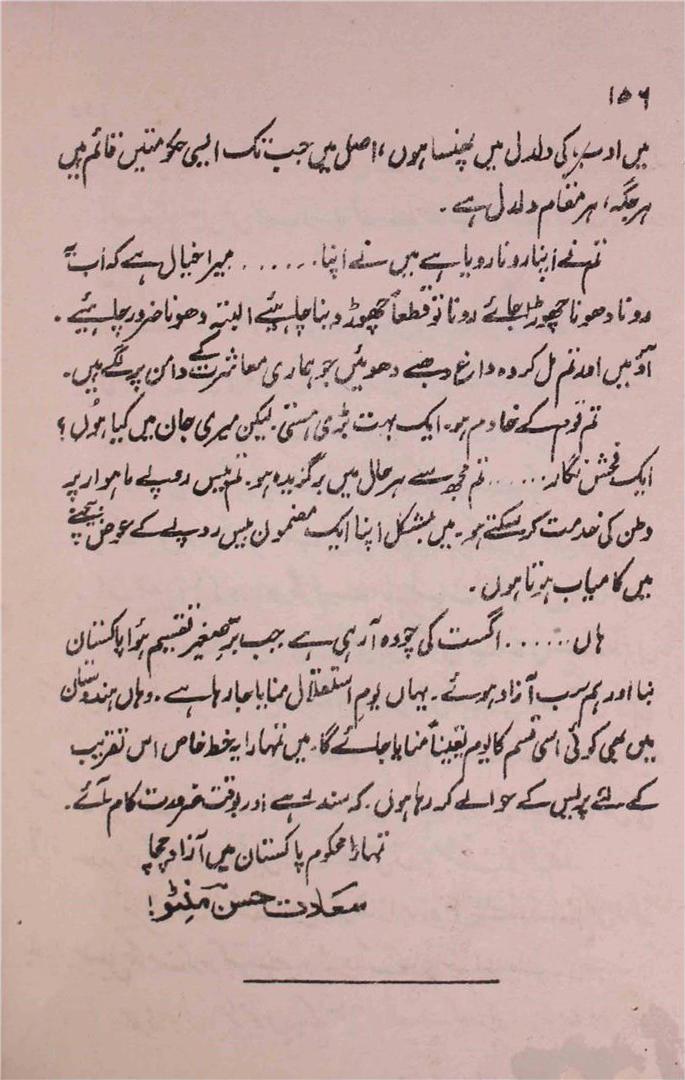 ۱۵۶
میں اوسبر، کی دلدل میں پھنسا ہوں، اصل میں جب تک ایسی حکومتیں قائم ہیں
ہر جگہ، ہر مقام دلدل ہے۔
تم نے اپنا رونا رویا ہے میں نے اپنا...... میرا خیال ہے کہ اب یہ
رونا دھونا چھوڑا جائے رونا تو قطعاً چھوڑ دینا چاہیئے البتہ دھونا ضرور چاہیئے۔
آؤ میں اور تم مل کر وہ داغ دھبے دھوئیں جو ہماری معاشرت کے دامن پر لگے ہیں۔
تم قوم کے خادم ہو۔ ایک بہت بڑی ہستی لیکن میری جان میں کیا ہُوں؟
ایک فحش نگار...... تم مجھ سے ہر حال میں برگزیدہ ہو۔ تم بیس روپے ماہوار پر
وطن کی خدمت کر سکتے ہو۔ میں بمشکل اپنا ایک مضمون بیس روپے کے عوض بیچنے
میں کامیاب ہوتا ہوں۔
ہاں...... اگست کی چودہ آ رہی ہے جب برِّصغیر تقسیم ہؤا پاکستان
بنا اور ہم سب آزاد ہوئے۔ یہاں یومِ استقلال منایا جا رہا ہے۔ وہاں ہندوستان
میں بھی کوئی اسی قسم کا یوم یقیناً منایا جائے گا۔ میں تمہارا یہ خط خاص اس تقریب
کے لئے پریس کے حوالے کر رہا ہوں۔ کہ سند رہے اور بوقت ضرورت کام آئے۔
تمہارا محکوم پاکستان میں آزاد چچا
سعادت حسن منٹو!